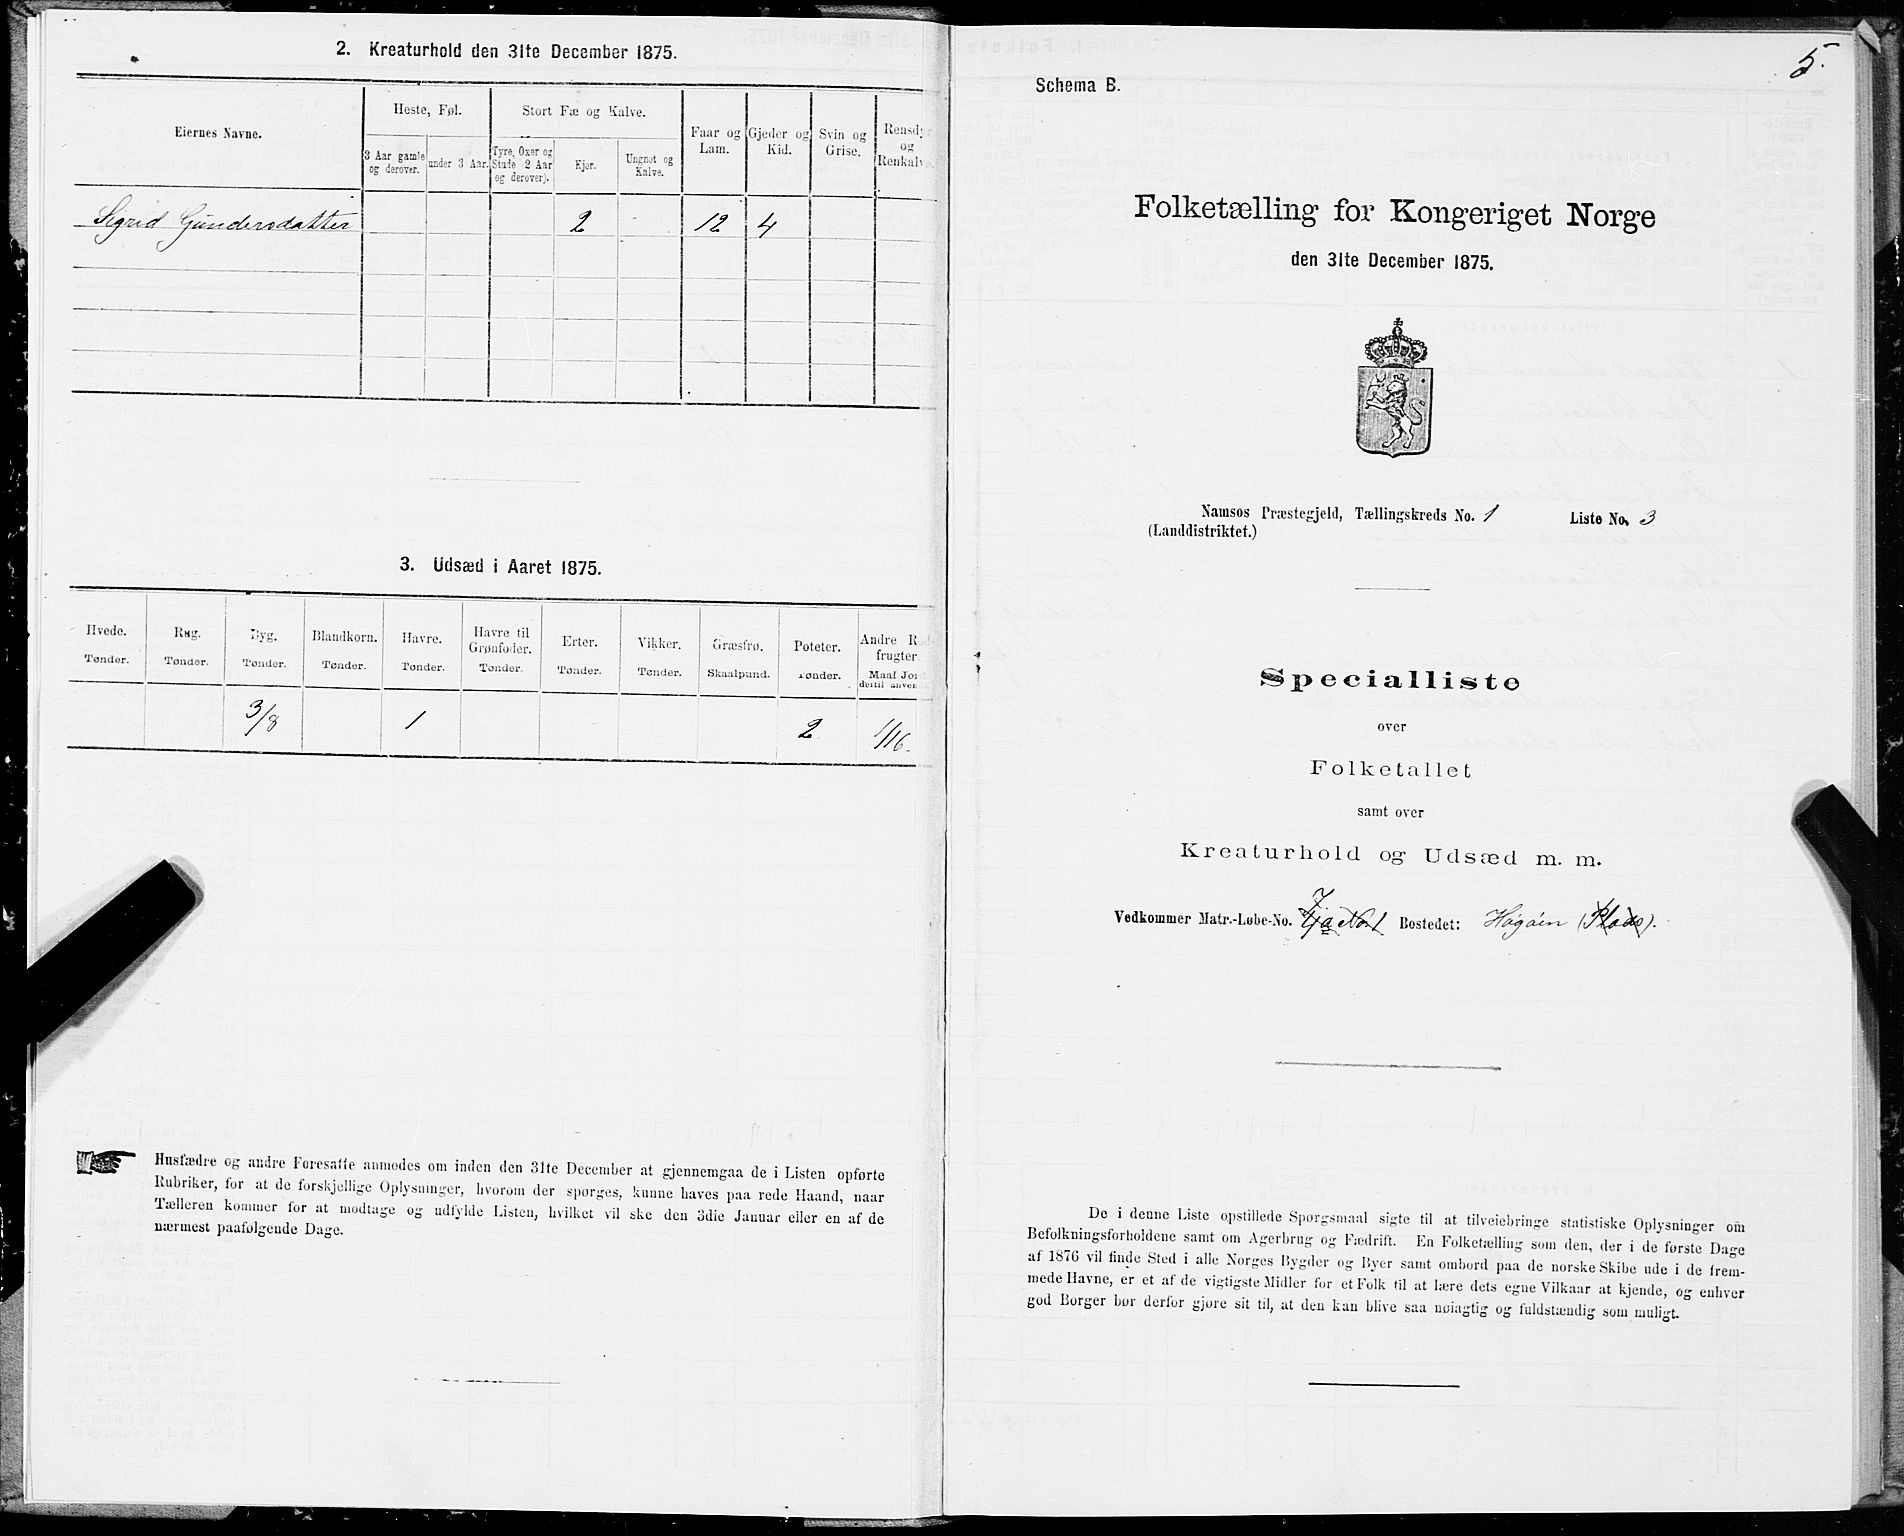 2. Kreaturhold den 31te December 1875.
Eiernes Navne.
Heste, Føl.
3 Aar gamle og derover.
under 3 Aar.
Stort Fæ og Kalve.
Tyre, Oxer og Stude 2 Aar og derover).
Kjør.
Ungnøt og Kalve.
Faar og Lam.
Gjeder og Kid.
Svin og Grise.
Rensdyr og Renkalve
Sigrid Gundersdatter 2 12 4
3. Udsæd i Aaret 1875.
Hvede. Rug. Byg. Blandkorn. Havre. Havre til Grønfoder. Erter. Vikker. Græsfrø. Poteter. Andre Rod- frugter
Tønder. Tønder. Tønder. Tønder. Tønder. Tønder. Tønder. Tønder. Skaalpund. Tønder. Maal Jord dertil anvendt
3/8 1 2 1/16.
Husfædre og andre Foresatte anmodes om inden den 31te December at gjennemgaa de i Listen opførte
Rubriker, for at de forskjellige Oplysninger, hvorom der spørges, kunne haves paa rede Haand, naar
Tælleren kommer for at modtage og udfylde Listen, hvilket vil ske den 3die Januar eller en af de
nærmest paafølgende Dage.
5.
Schema B.
Folketælling for Kongeriget Norge
den 31te December 1875.
Namsos Præstegjeld, Tællingskreds No. 1 Liste No. 3
(Landdistriktet.)
Specialliste
over
Folketallet
samt over
Kreaturhold og Udsæd m. m.
Vedkommer Matr.-Løbe-No. Bostedet: Høgöen (Plads).
De i denne Liste opstillede Spørgsmaal sigte til at tilveiebringe statistiske Oplysninger om
Befolkningsforholdene samt om Agerbrug og Fædrift. En Folketælling som den, der i de første Dage
af 1876 vil finde Sted i alle Norges Bygder og Byer samt ombord paa de norske Skibe ude i de frem-
mede Havne, er et af de vigtigste Midler for et Folk til at lære dets egne Vilkaar at kjende, og enhver
god Borger bør derfor gjøre sit til, at den kan blive saa nøiagtig og fuldstændig som muligt.